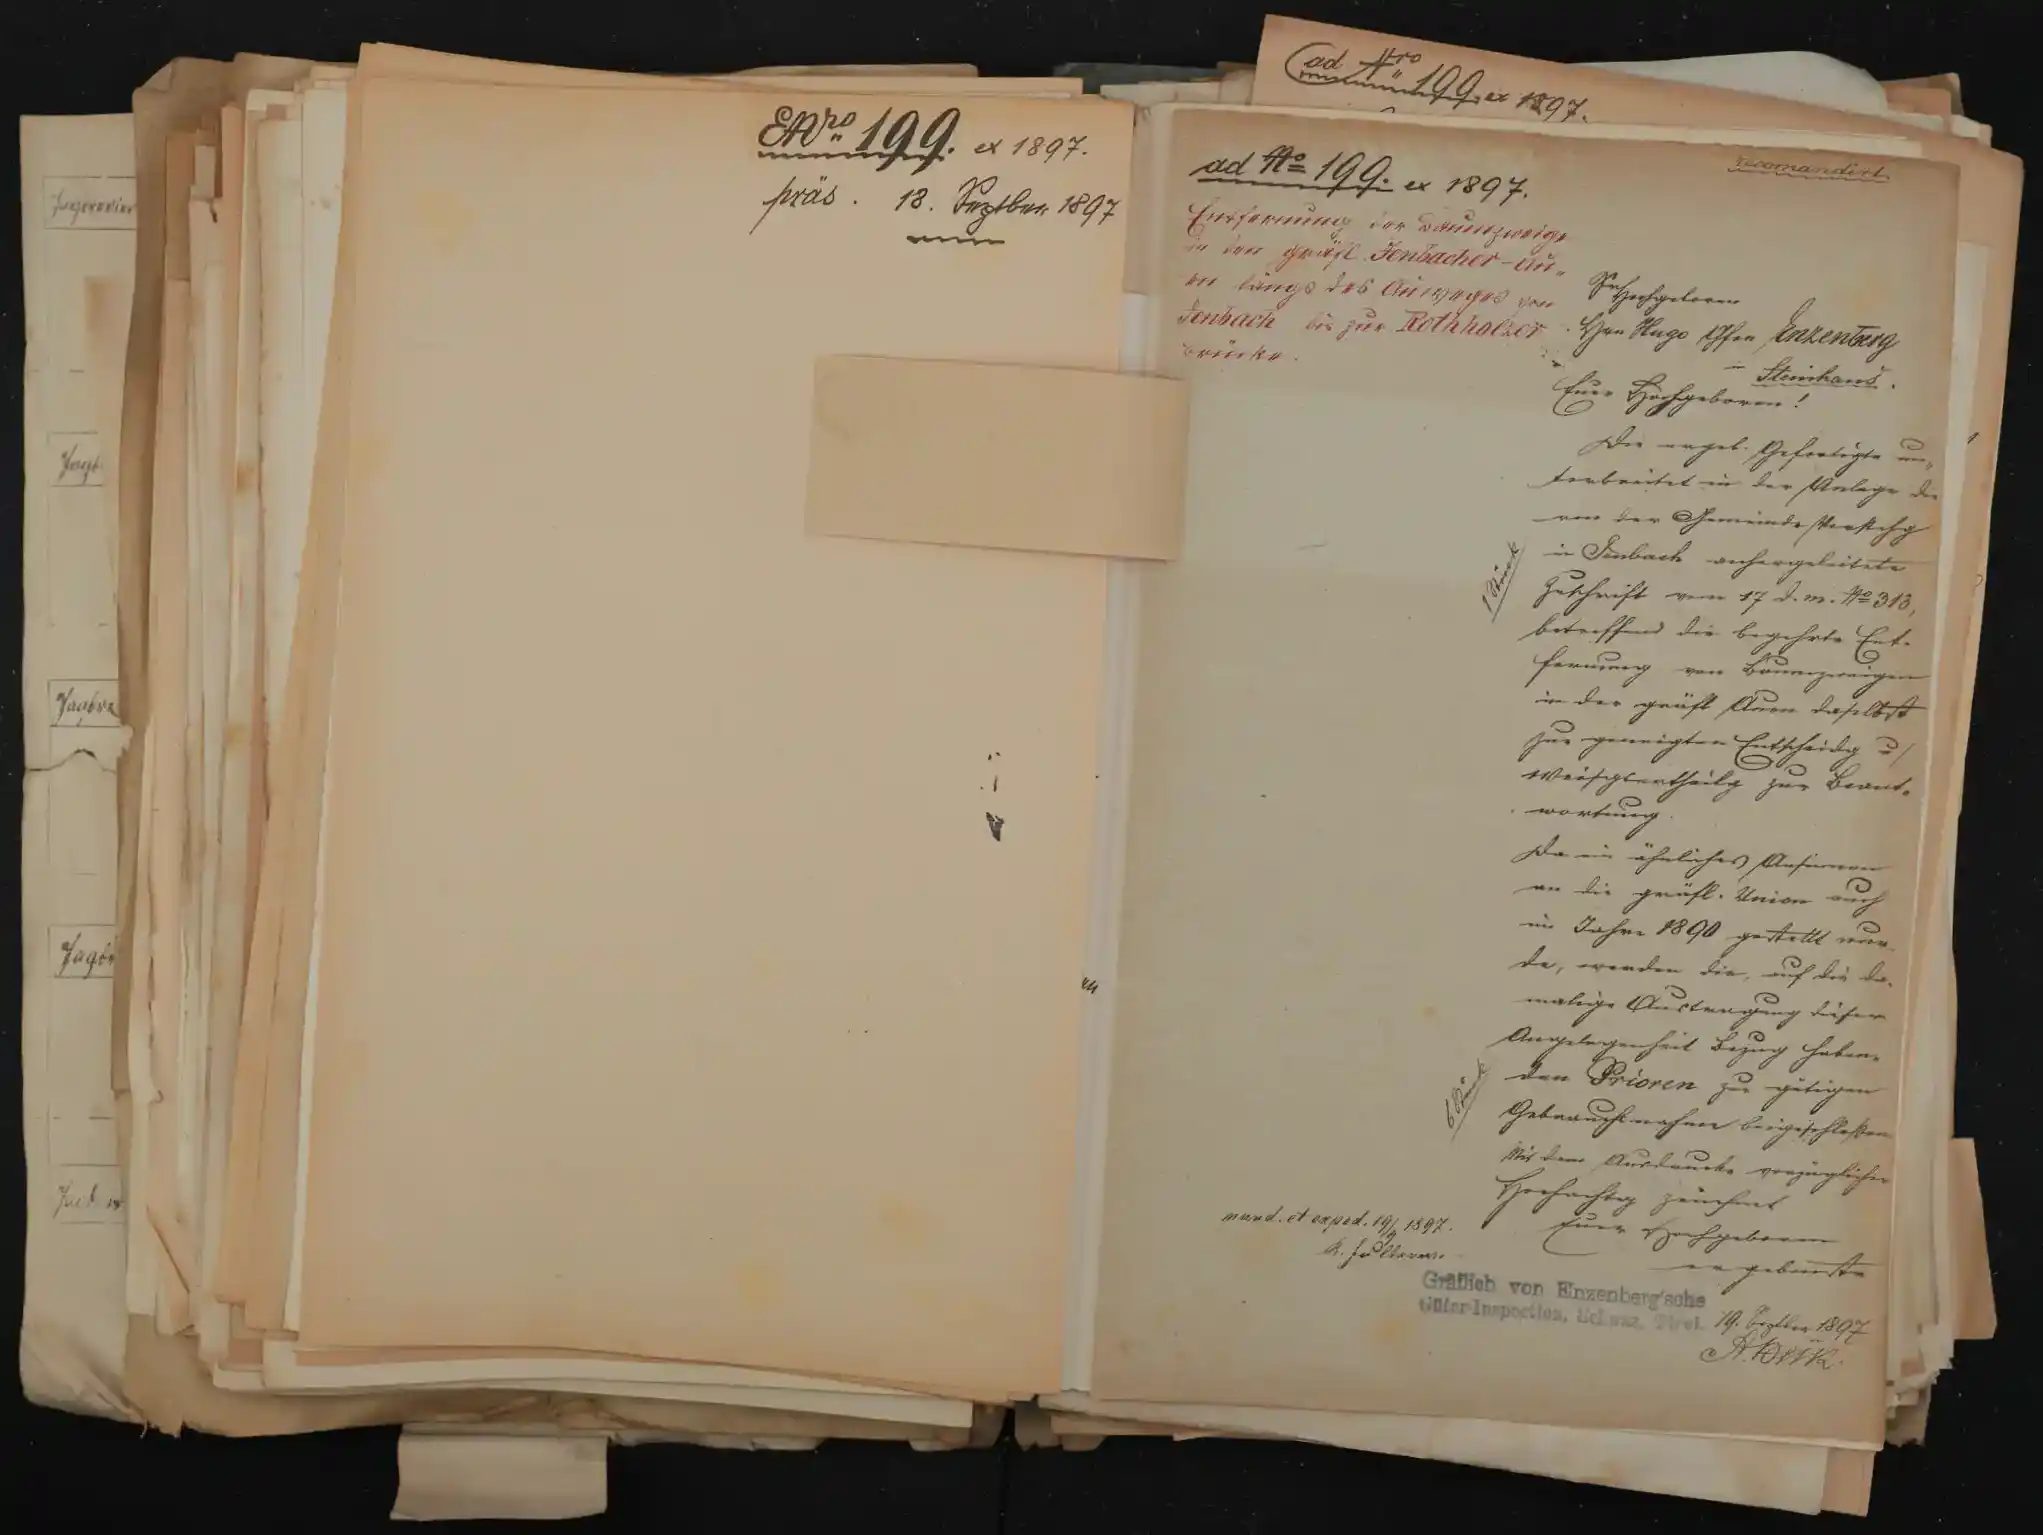 ENro 199. ex 1897.
präs. 18. Septber 1897
ad Nro 199. ex 1897.
recomandirt.
ad No 199. ex 1897.
Entfernung der Baumzweige
in den gräfl. Jenbacher-Au-
en längs des Auweges von
Jenbach bis zur Rothholzer
Brücke.
Sr Hochgeboren
Hrn Hugo Gfen Enzenberg
in Steinhaus.
Euer Hochgeboren!
Die ergeb. Gefertigte un-
terbreitet in der Anlage die
von der Gemeinde Vorstehg
in Jenbach anhergeleitete
Zuschrift vom 17 d. m. No 313,
betreffend die begehrte Ent-
fernung von Baumzweigen
in der gräfl Auen daselbst
zur geneigten Entscheidg u/
Weisgsertheilg zur Beant-
wortung.
Da ein ähnliches Ansinnen
an die gräfl. Union auch
im Jahre 1890 gestellt wur-
de, werden die, auf die da-
malige Austragung dieser
Angelegenheit Bezug haben-
den Prioren zur gütigen
Gebrauchsnahme beigeschloßen
Mit dem Ausdrucke vorzüglicher
Hochachtg zeichnet
Euer Hochgeboren
ergebenste
1 Stück
6 Stück
mund. et exped. 19/9 1897.
Gräflich von Enzenberg'sche
Güter-Inspection, Schwaz, Tirol.
19. Septber 1897
Jagdrevier